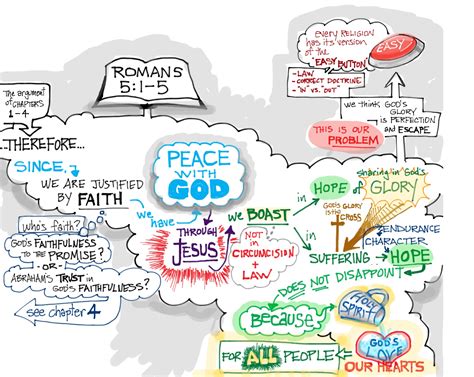 ROMANS
5:1-5
EVERY RELIGION
HAS ITS VERSION
OF THE
"EASY
BUTTON"
EASY
- LAW
- CORRECT DOCTRINE
- "IN" VS. "OUT"
The argument
of CHAPTERS
1-4
we think GOD'S
GLORY
IS PERFECTION
and ESCAPE
THIS IS OUR
PROBLEM
..THEREFORE...
SINCE,
WE ARE JUSTIFIED
BY FAITH
who's faith?
GOD'S FAITHFULNESS
TO THE PROMISE?
-OR-
ABRAHAM'S TRUST in
GOD'S FAITHFULNESS?
see chapter 4
we
HAVE
PEACE
WITH
GOD
THROUGH
JESUS
we BOAST
NOT
IN
CIRCUMCISION
+
LAW
in
HOPE of
sharing in God's
GLORY
GOD'S GLORY
IS the
CROSS
in
SUFFERING
ENDURANCE
CHARACTER
HOPE
DOES NOT DISAPPOINT
BECAUSE
HOLY
SPIRIT
GOD'S
LOVE
FOR ALL PEOPLE
OUR HEARTS